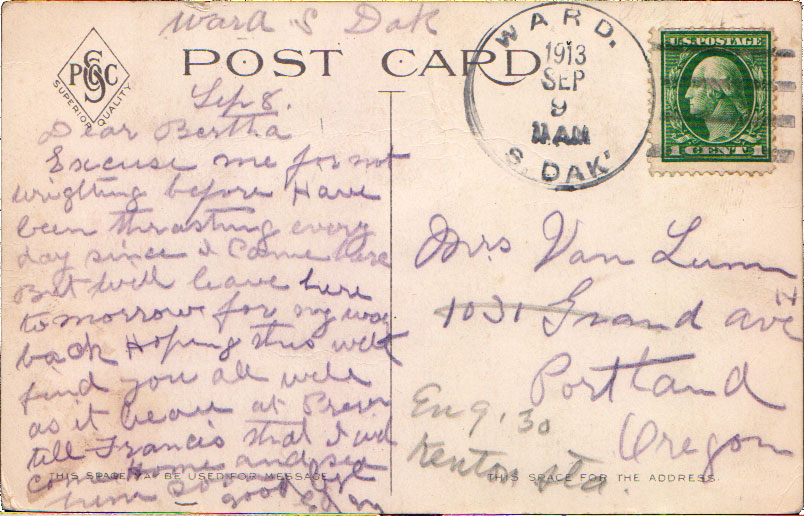 Ward S Dak
POST CARD
PSCC
SUPERIOR QUALITY
WARD.
1913
SEP
9
S. DAK.
U.S. POSTAGE
1 CENT 1
Sep 8.
Dear Bertha
Excuse me for not
wrigtting before Have
been thrashing every
day since I came here
But will leave here
tomorrow for my way
back Hoping this will
find you all well
as it leave at
till Francis that I will
come Home and see
him so good
THIS SPACE MAY BE USED FOR MESSAGE
Mrs Van Lumm
1031 Grand ave
N
Portland
Oregon
Eng. 30
Kenton Sta.
THIS SPACE FOR THE ADDRESS